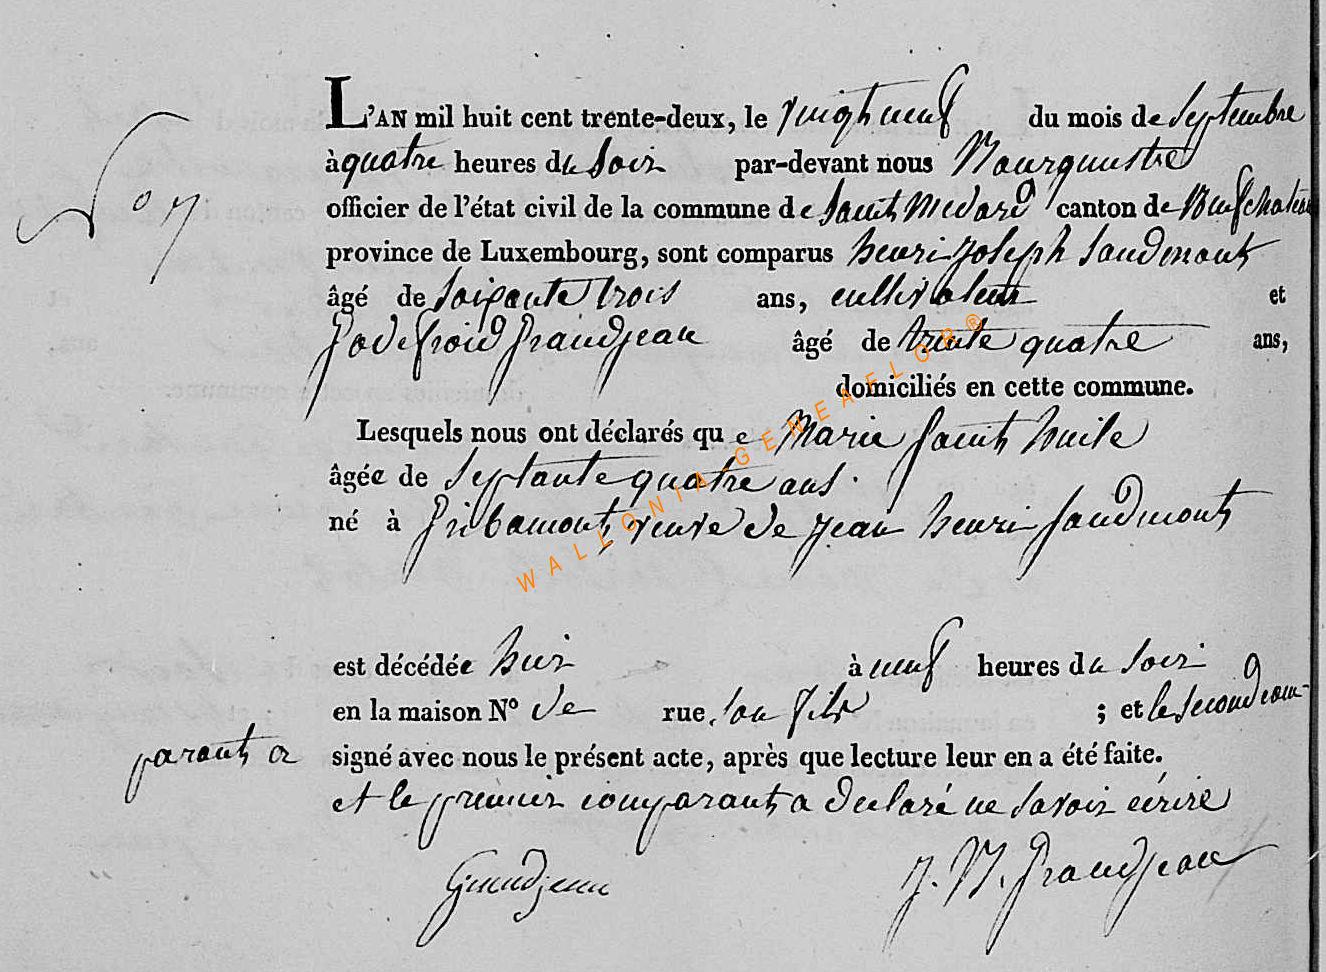 L'AN mil huit cent trente-deux, le vingt neuf du mois de Septembre
N° 7
à quatre heures du Soir par-devant nous Bourgmestre
officier de l'état civil de la commune de Saint Medard canton de Neufchateau
province de Luxembourg, sont comparus henri joseph Saudmont
âgé de Soixante trois ans, cultivateur et
Godefroid Grandjean âgé de trente quatre ans,
domiciliés en cette commune.
Lesquels nous ont déclarés que Marie Saint huile
âgée de Septante quatre ans.
né à Gribamont veuve de jean henri Saudmont
est décédée hier à neuf heures du Soir
en la maison N° de rue Son fils ; et le Second com-
parant a signé avec nous le présent acte, après que lecture leur en a été faite.
et le premier comparant a declaré ne Savoir écrire
Grandjean J. N. Grandjean
WALLONIA-GENEAFLOR®